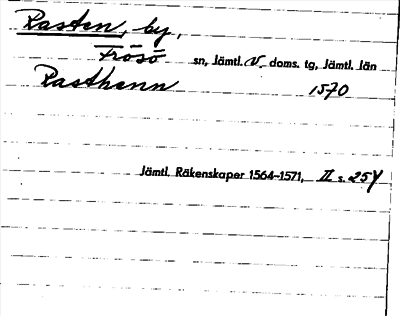 Rasten, by,
Frösö sn, Jämtl. V. doms. tg, Jämtl. län
Rasthenn 1570
Jämtl. Räkenskaper 1564–1571, II s. 254